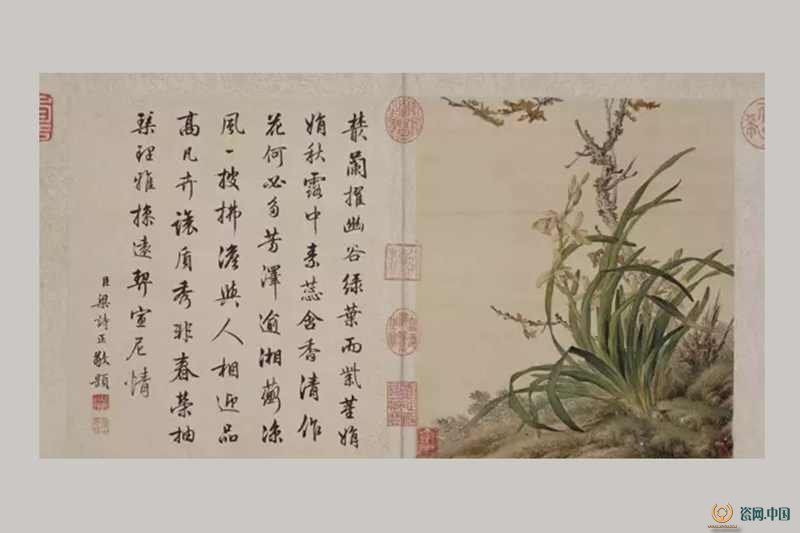 藂蘭擢幽谷綠葉而紫莖娟
娟秋露中素蕊含香清作
花何必多芳澤逾湘蘅凉
風一披拂澹與人相迎品
高凡卉讓質秀非春榮抽
琹理雅操遠契宣尼情
臣梁詩正敬題
瓷网.中国